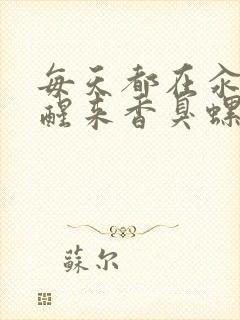 每天都在汆
醒来香臭螺
蘇尔